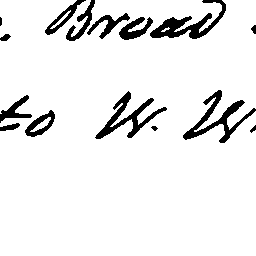 . Broad
to W. W